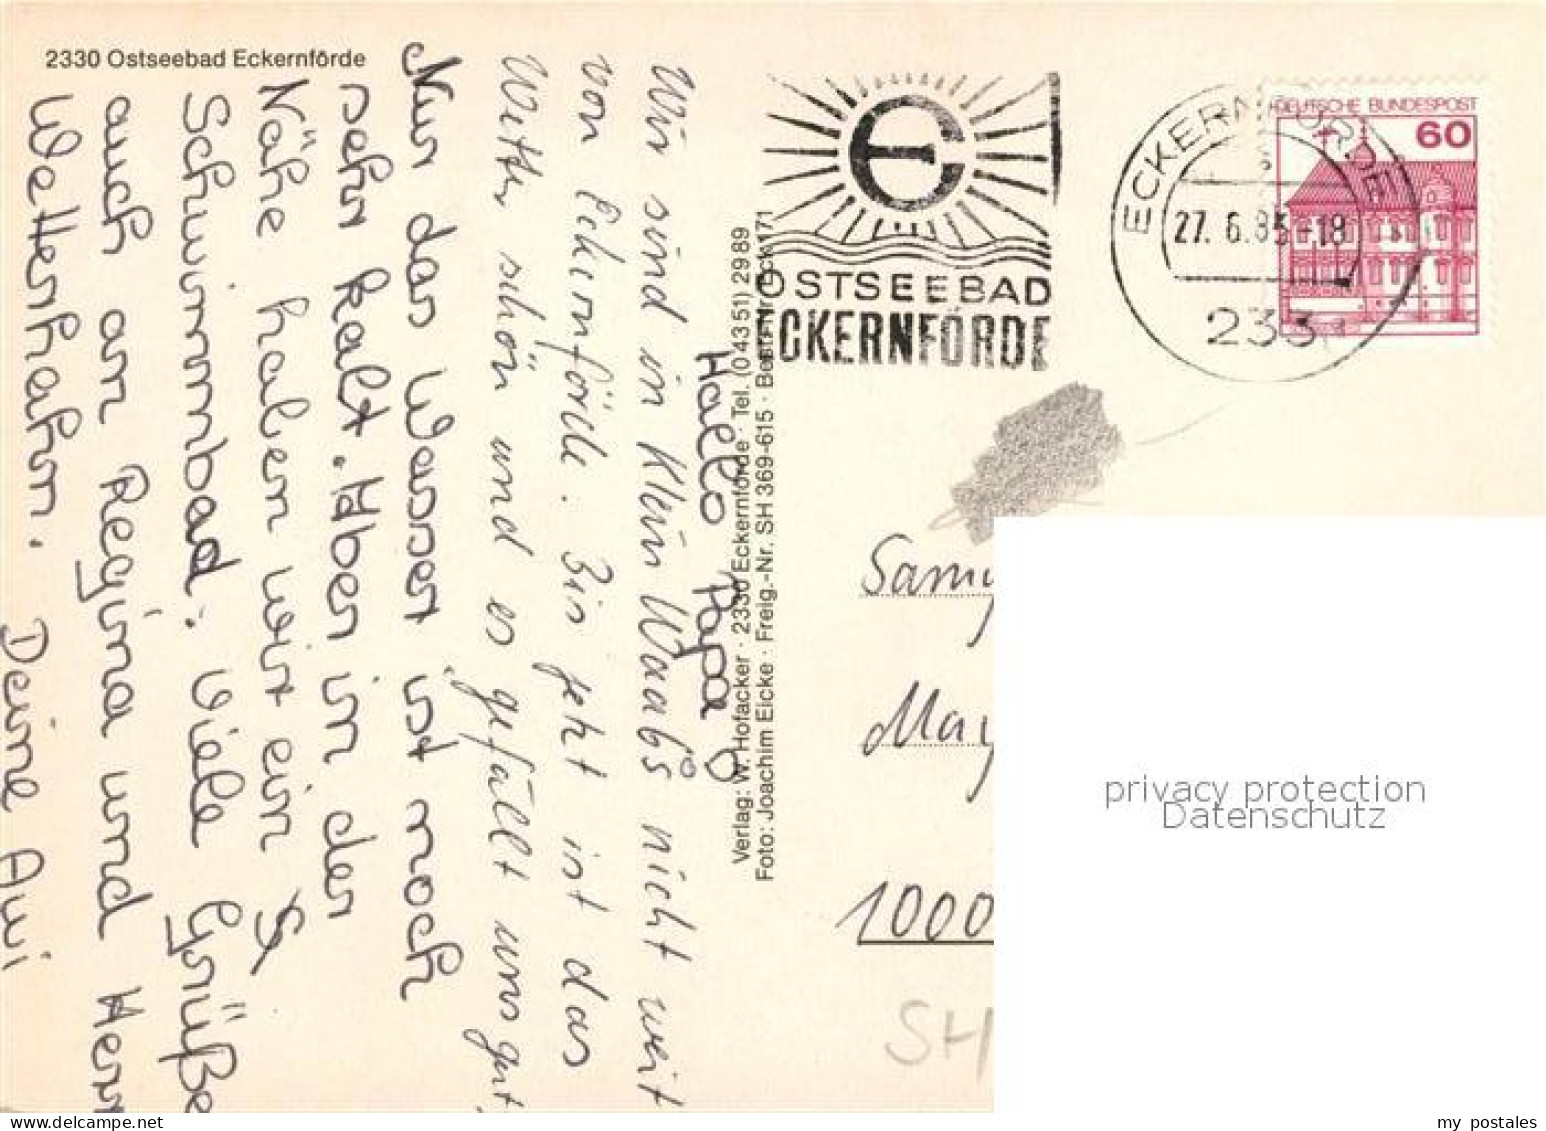 2330 Ostseebad Eckernförde
Hallo Papa
Wir sind in Klein Waabs nicht weit
von Eckernförde. Bis jetzt ist das
Wetter schön und es gefällt uns gut,
Nur das Wasser ist noch
sehr kalt. Aber in der
Nähe haben wir ein
Schwimmbad. Viele Grüße
auch an Regina und Herr
Wetterhahn.
Deine Avi
Verlag: W. Hofacker · 2330 Eckernförde · Tel. (0 43 51) 29 89
Foto: Joachim Eicke · Freig.-Nr. SH 369-615 · Bestell-Nr. Eck 171
OSTSEEBAD
ECKERNFÖRDE
ECKERNFÖRDE
27. 6. 85-18
233
DEUTSCHE BUNDESPOST
60
Samy
May
1000
SH
privacy protection
Datenschutz
my postales